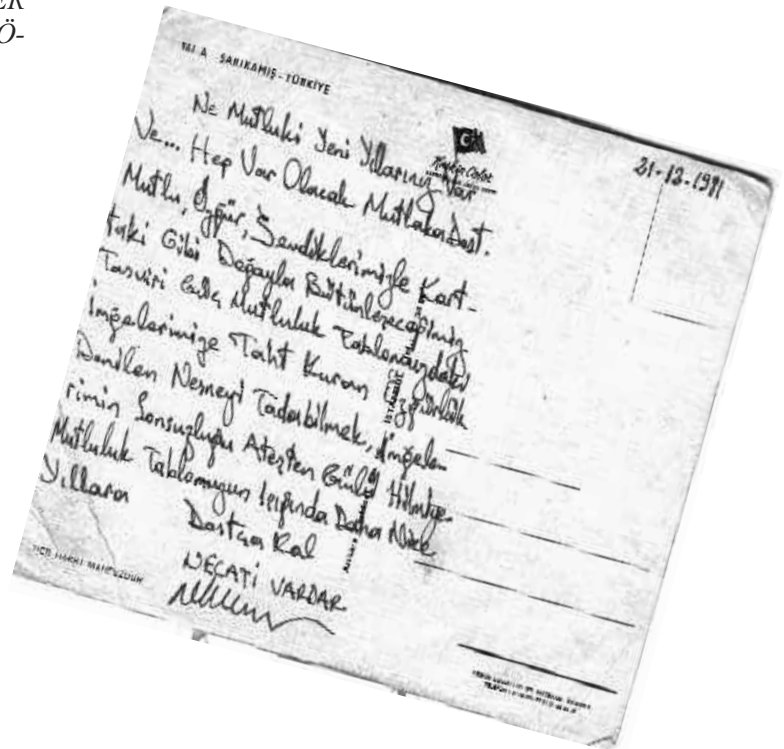 ER
Ö-
SARIKAMIŞ-TÜRKİYE
21-12-1981
Ne Mutluki Yeni Yıllarınız Var
Ve... Hep Var Olacak Mutlaka Dost.
Mutlu, Özgür, Sevdiklerimizle Kart-
taki Gibi Doğayla Bütünleşeceğimiz
Tasviri Güç Mutluluk Tablomuzdaki
İmgelerimize Taht Kuran Özgürlük
Denilen Nesneyi Tadabilmek, İmgele-
rimin Sonsuzluğu Ateşten Gülü
Mutluluk Tablomuzun Işığında Daha Nice
Yıllara
Dostça Kal
NECATİ VARDAR
HER HAKKI MAHFUZDUR
İSTANBUL